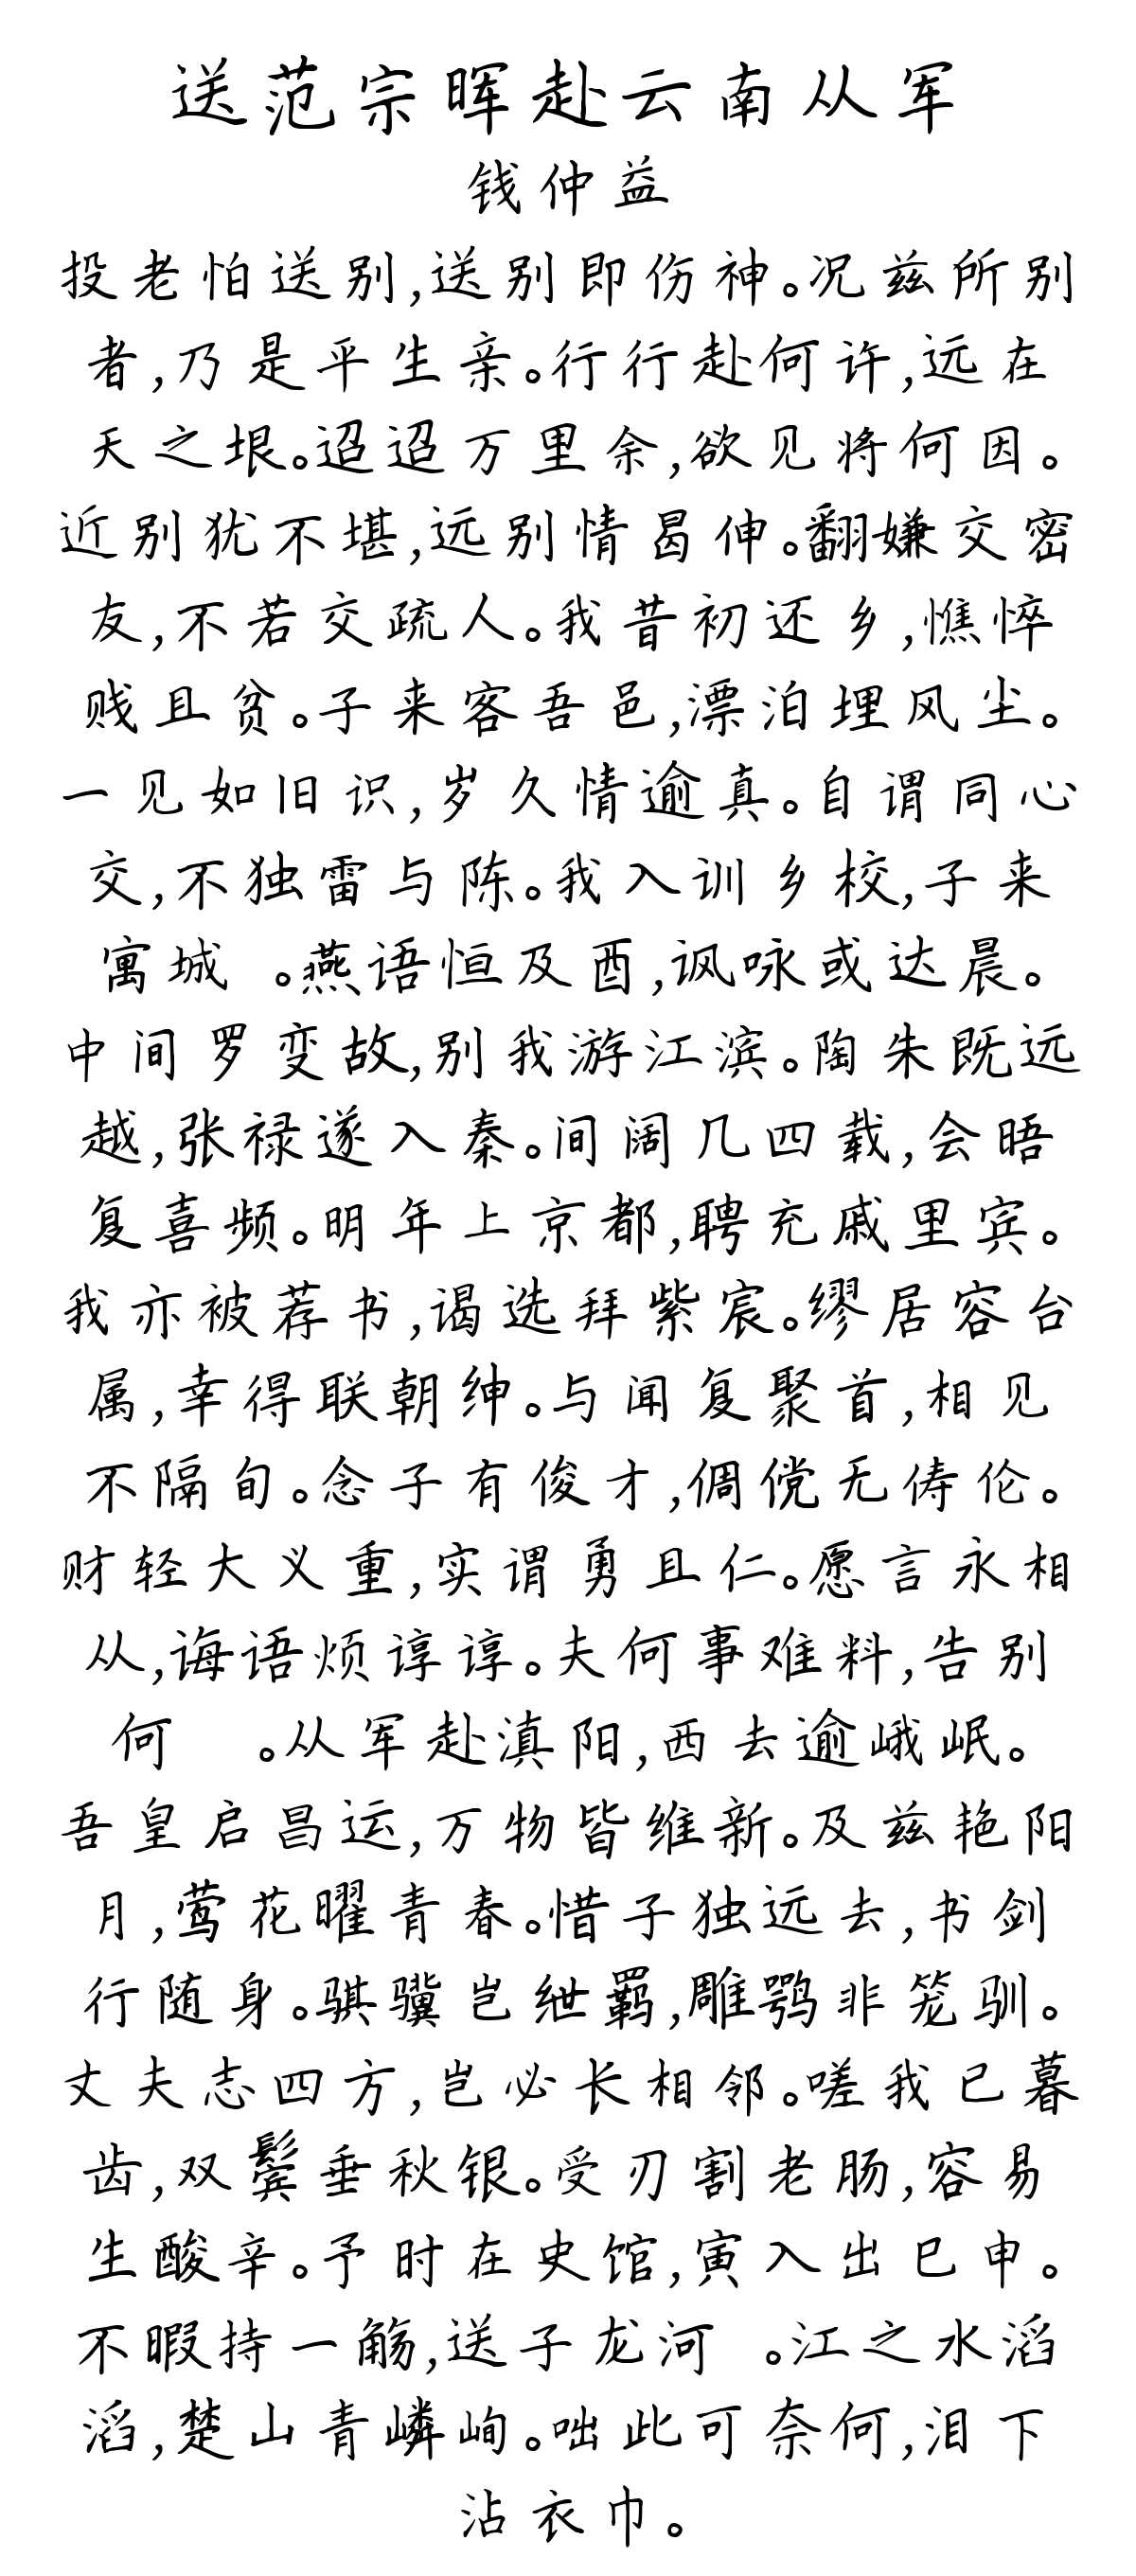 送范宗晖赴云南从军
钱仲益
投老怕送别,送别即伤神。况兹所别
者,乃是平生亲。行行赴何许,远在
天之垠。迢迢万里余,欲见将何因。
近别犹不堪,远别情曷伸。翻嫌交密
友,不若交疏人。我昔初还乡,憔悴
贱且贫。子来客吾邑,漂泊埋风尘。
一见如旧识,岁久情逾真。自谓同心
交,不独雷与陈。我入训乡校,子来
寓城 。燕语恒及酉,讽咏或达晨。
中间罗变故,别我游江滨。陶朱既远
越,张禄遂入秦。间阔几四载,会晤
复喜频。明年上京都,聘充戚里宾。
我亦被荐书,谒选拜紫宸。缪居容台
属,幸得联朝绅。与闻复聚首,相见
不隔旬。念子有俊才,倜傥无俦伦。
财轻大义重,实谓勇且仁。愿言永相
从,诲语烦谆谆。夫何事难料,告别
何 。从军赴滇阳,西去逾峨岷。
吾皇启昌运,万物皆维新。及兹艳阳
月,莺花曜青春。惜子独远去,书剑
行随身。骐骥岂绁羁,雕鹗非笼驯。
丈夫志四方,岂必长相邻。嗟我已暮
齿,双鬓垂秋银。受刃割老肠,容易
生酸辛。予时在史馆,寅入出巳申。
不暇持一觞,送子龙河 。江之水滔
滔,楚山青嶙峋。咄此可奈何,泪下
沾衣巾。